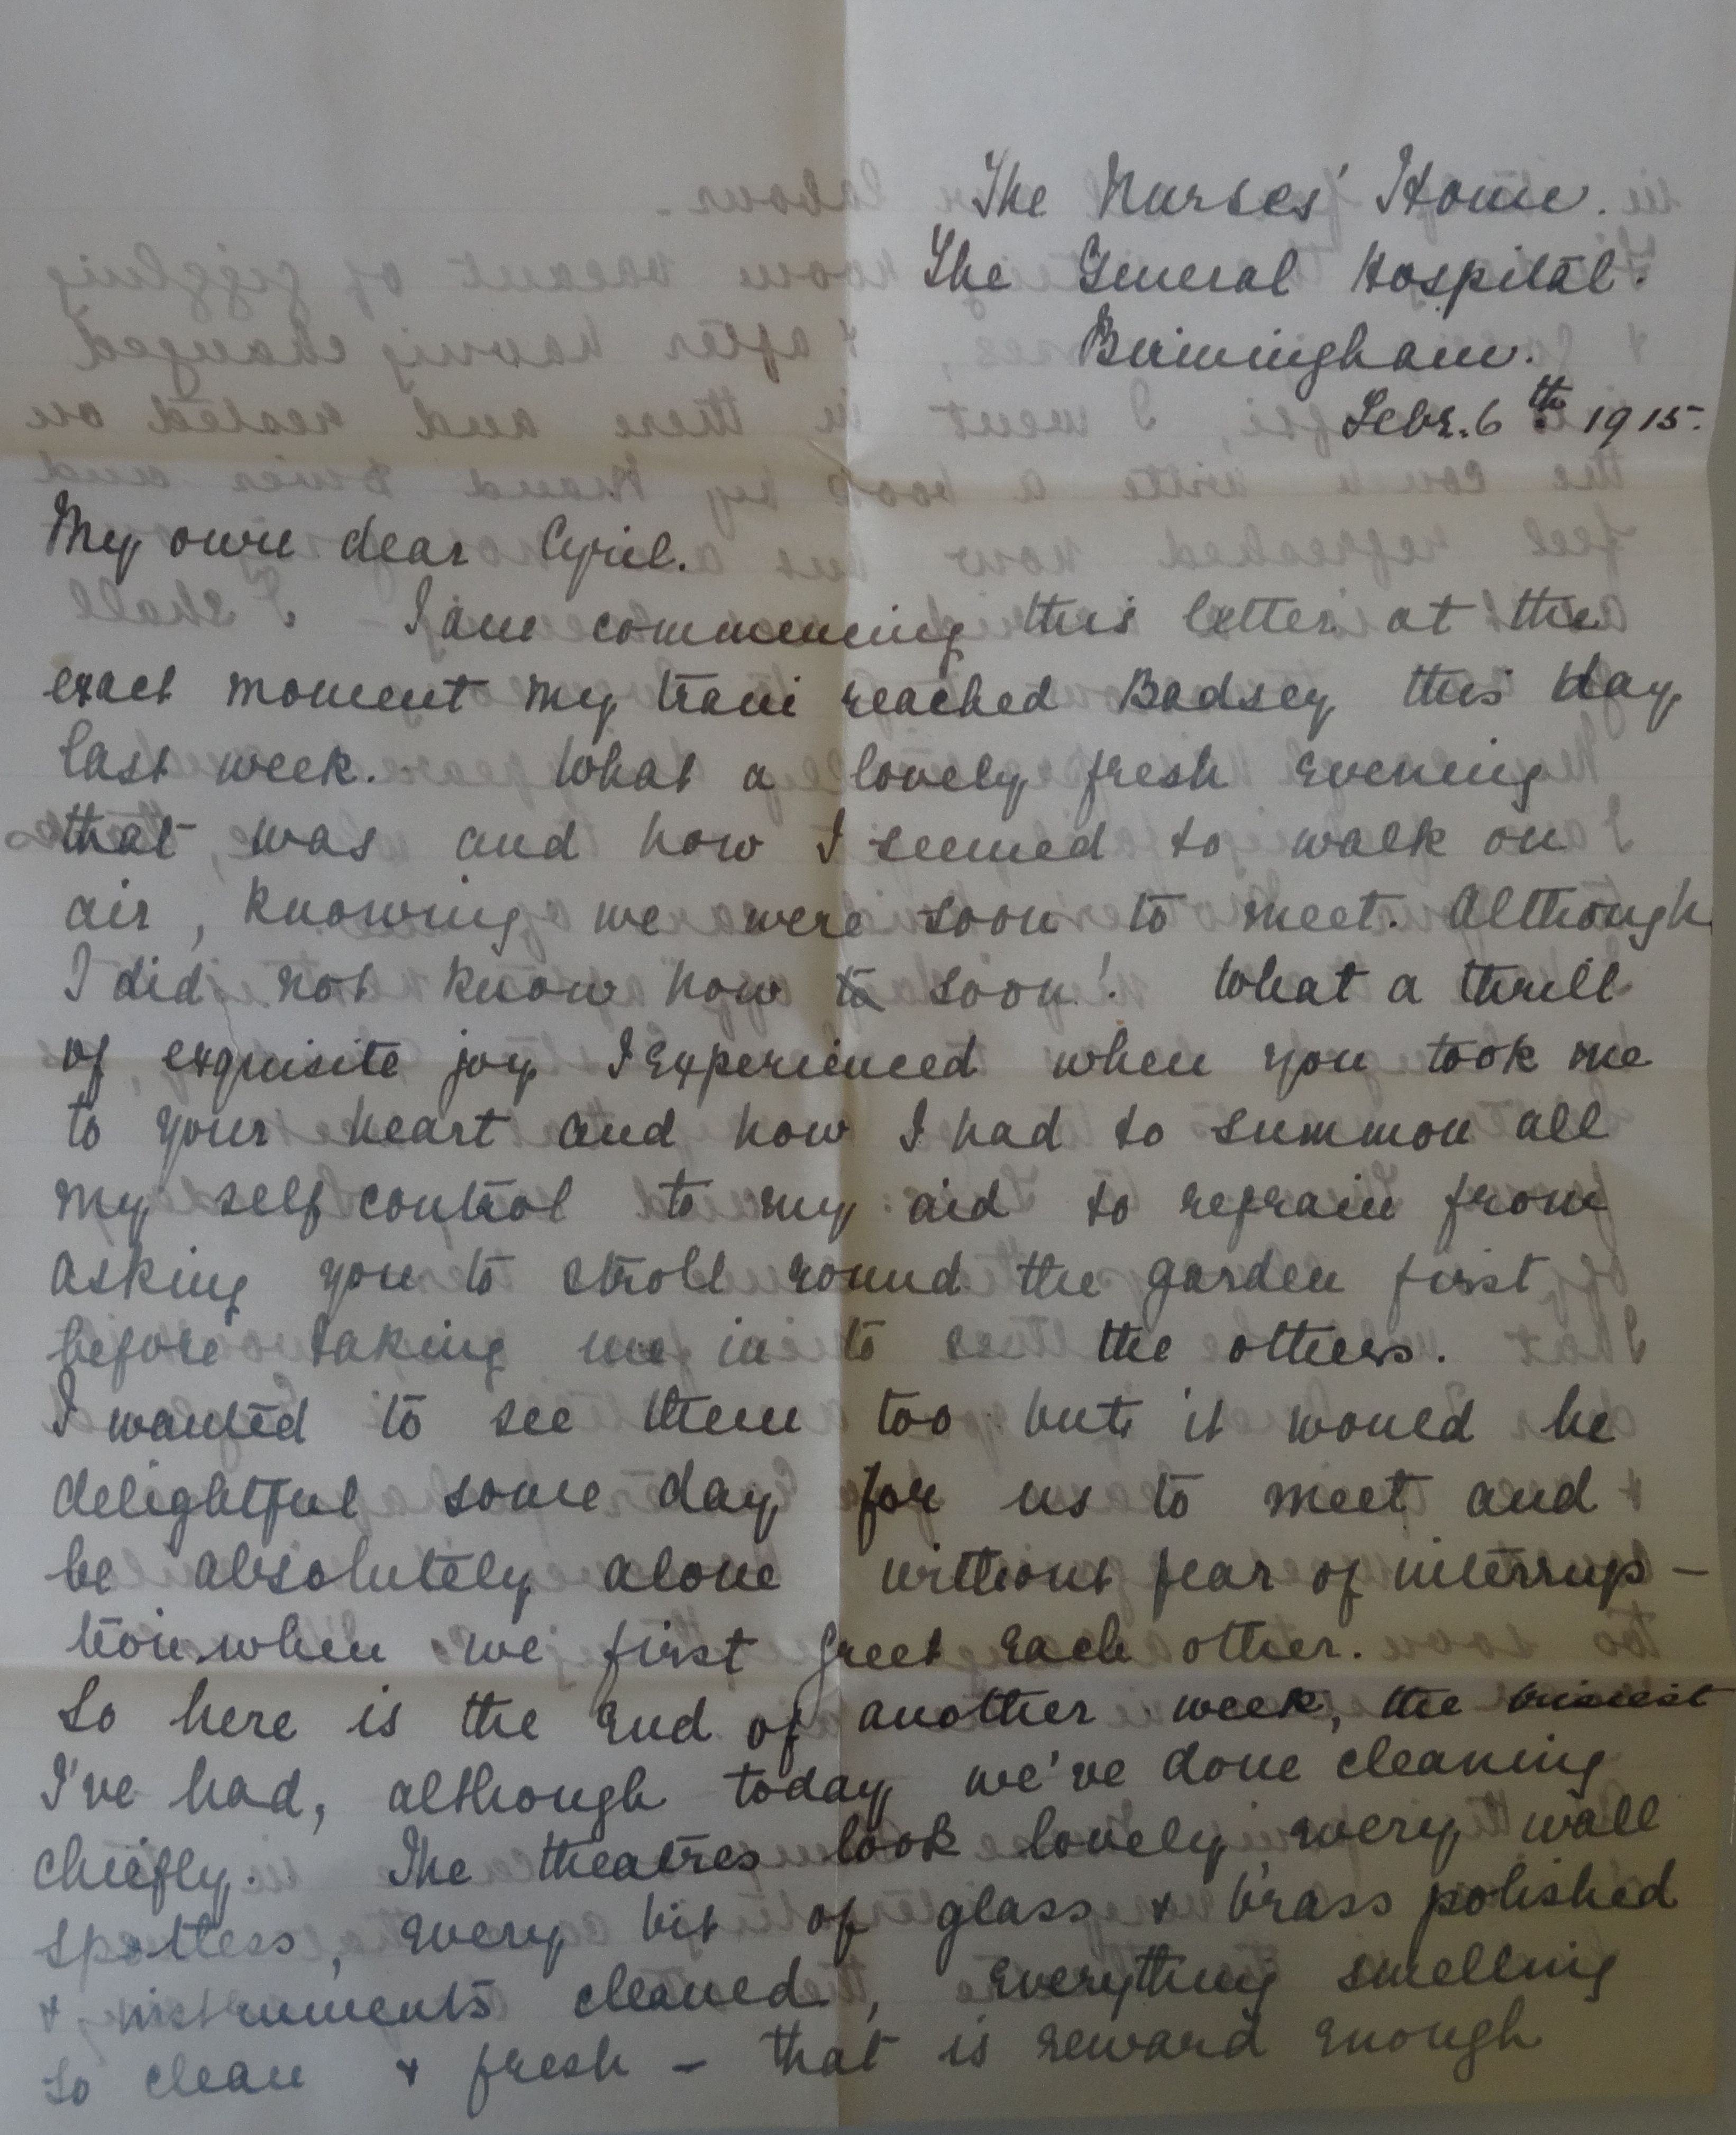 The Nurses' Home.
The General Hospital.
Birmingham.
Febr. 6th 1915.
My own dear Cyril.
I am commencing this letter at the
exact moment my train reached Badsey this day
last week. What a lovely fresh evening
that was and how I seemed to walk on
air, knowing we were soon to meet. Although
I did not know how soon! What a thrill
of exquisite joy I experienced when you took me
to your heart and how I had to summon all
my self control to my aid to refrain from
asking you to stroll round the garden first
before taking me in to see the others.
I wanted to see them too but it would be
delightful some day for us to meet and
be absolutely alone without fear of interrup-
tion when we first greet each other.
So here is the end of another week, the busiest
I've had, although today we've done cleaning
chiefly. The theatres look lovely, every wall
spotless, every bit of glass & brass polished
& instruments cleaned, everything smelling
so clean & fresh - that is reward enough